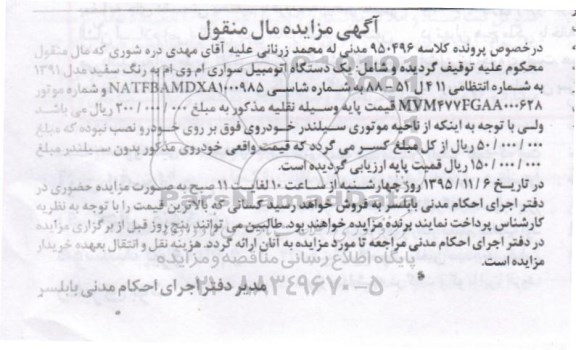 آگهی مزایده مال منقول
درخصوص پرونده کلاسه ۹۵۰۴۹۶ مدنی له محمد زرنانی علیه آقای مهدی دره شوری که مال منقول
محکوم علیه توقیف گردیده و شامل: یک دستگاه اتومبیل سواری ام وی ام به رنگ سفید مدل ۱۳۹۱
به شماره انتظامی ۱۱ ۴ ل ۵۱ - ۸۸ به شماره شاسی NATFBAMDXA۱۰۰۰۹۸۵ و شماره موتور
MVM۴۷۷FGAA۰۰۰۶۲۸ قیمت پایه وسیله نقلیه مذکور به مبلغ ۲۰۰/۰۰۰/۰۰۰ ریال می باشد
ولی با توجه به اینکه از ناحیه موتوری سیلندر خودروی فوق بر روی خودرو نصب نبوده که مبلغ
۵۰/۰۰۰/۰۰۰ ریال از کل مبلغ کسر می گردد که قیمت واقعی خودروی مذکور بدون سیلندر مبلغ
۱۵۰/۰۰۰/۰۰۰ ریال قیمت پایه ارزیابی گردیده است.
در تاریخ ۱۳۹۵/۱۱/۶ روز چهارشنبه از ساعت ۱۰ لغایت ۱۱ صبح به صورت مزایده حضوری در
دفتر اجرای احکام مدنی بابلسر به فروش خواهد رسید کسانی که بالاترین قیمت را با توجه به نظریه
کارشناس پرداخت نمایند برنده مزایده خواهند بود. طالبین می توانند پنج روز قبل از برگزاری مزایده
در دفتر اجرای احکام مدنی مراجعه تا مورد مزایده به آنان ارائه گردد. هزینه نقل و انتقال بعهده خریدار
مزایده است.
پایگاه اطلاع رسانی مناقصه و مزایده
مدیر دفتر اجرای احکام مدنی بابلسر